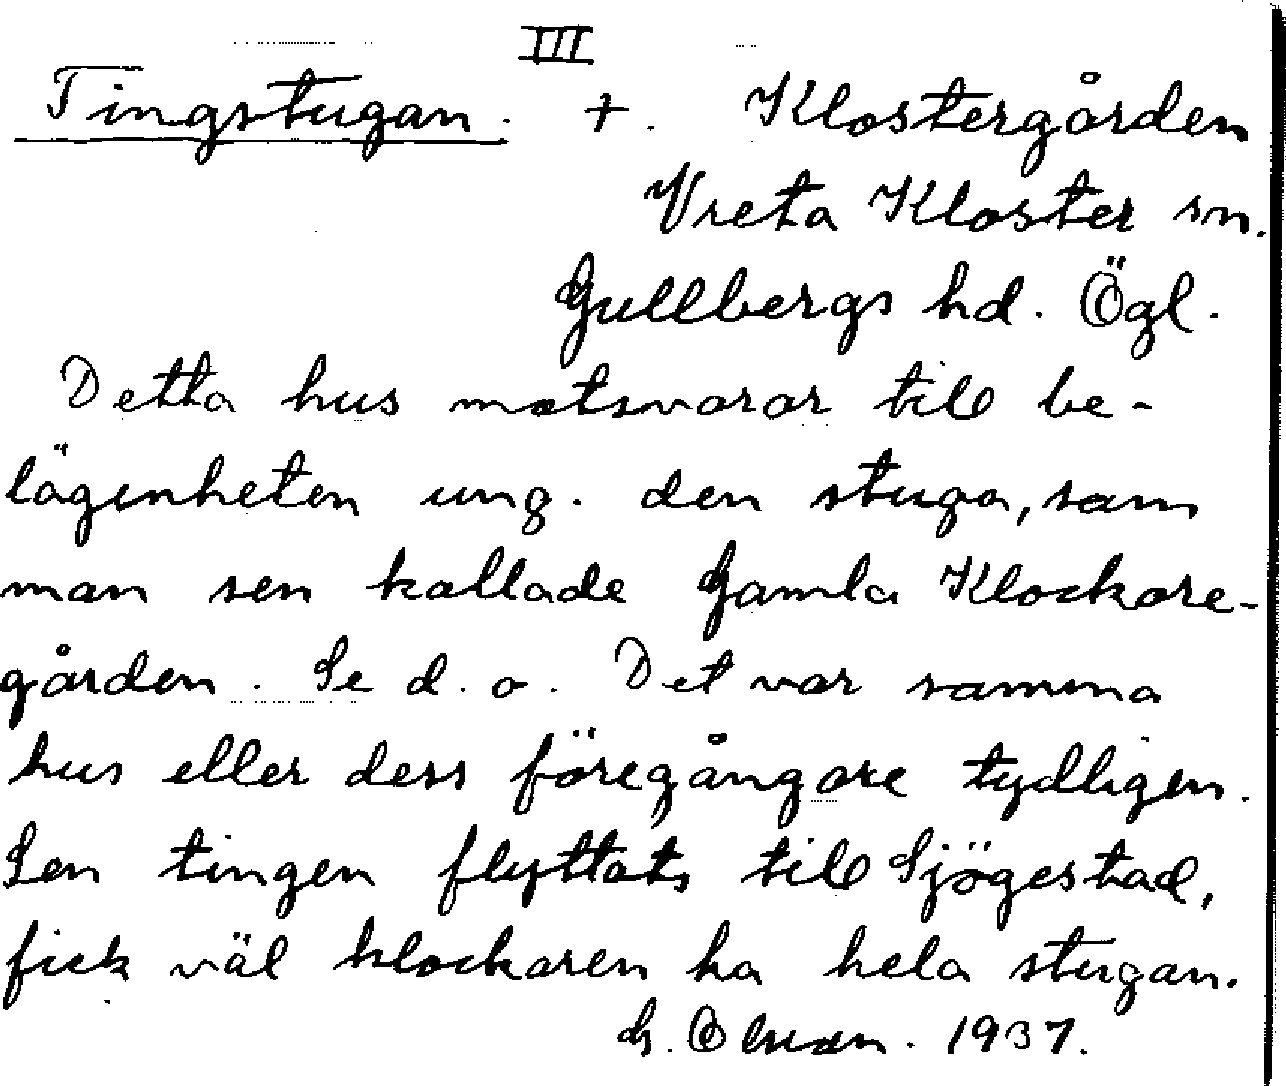 III
Tingstugan. +. Klostergården
Vreta Kloster sn.
Gullbergs hd. Ögl.
Detta hus motsvarar till be-
lägenheten ung. den stuga, som
man sen kallade Gamla Klockare-
gården. Se d. o. Det var samma
hus eller dess föregångare tydligen.
Sen tingen flyttats till Sjögestad,
fick väl klockaren ha hela stugan.
G. Olsson. 1937.